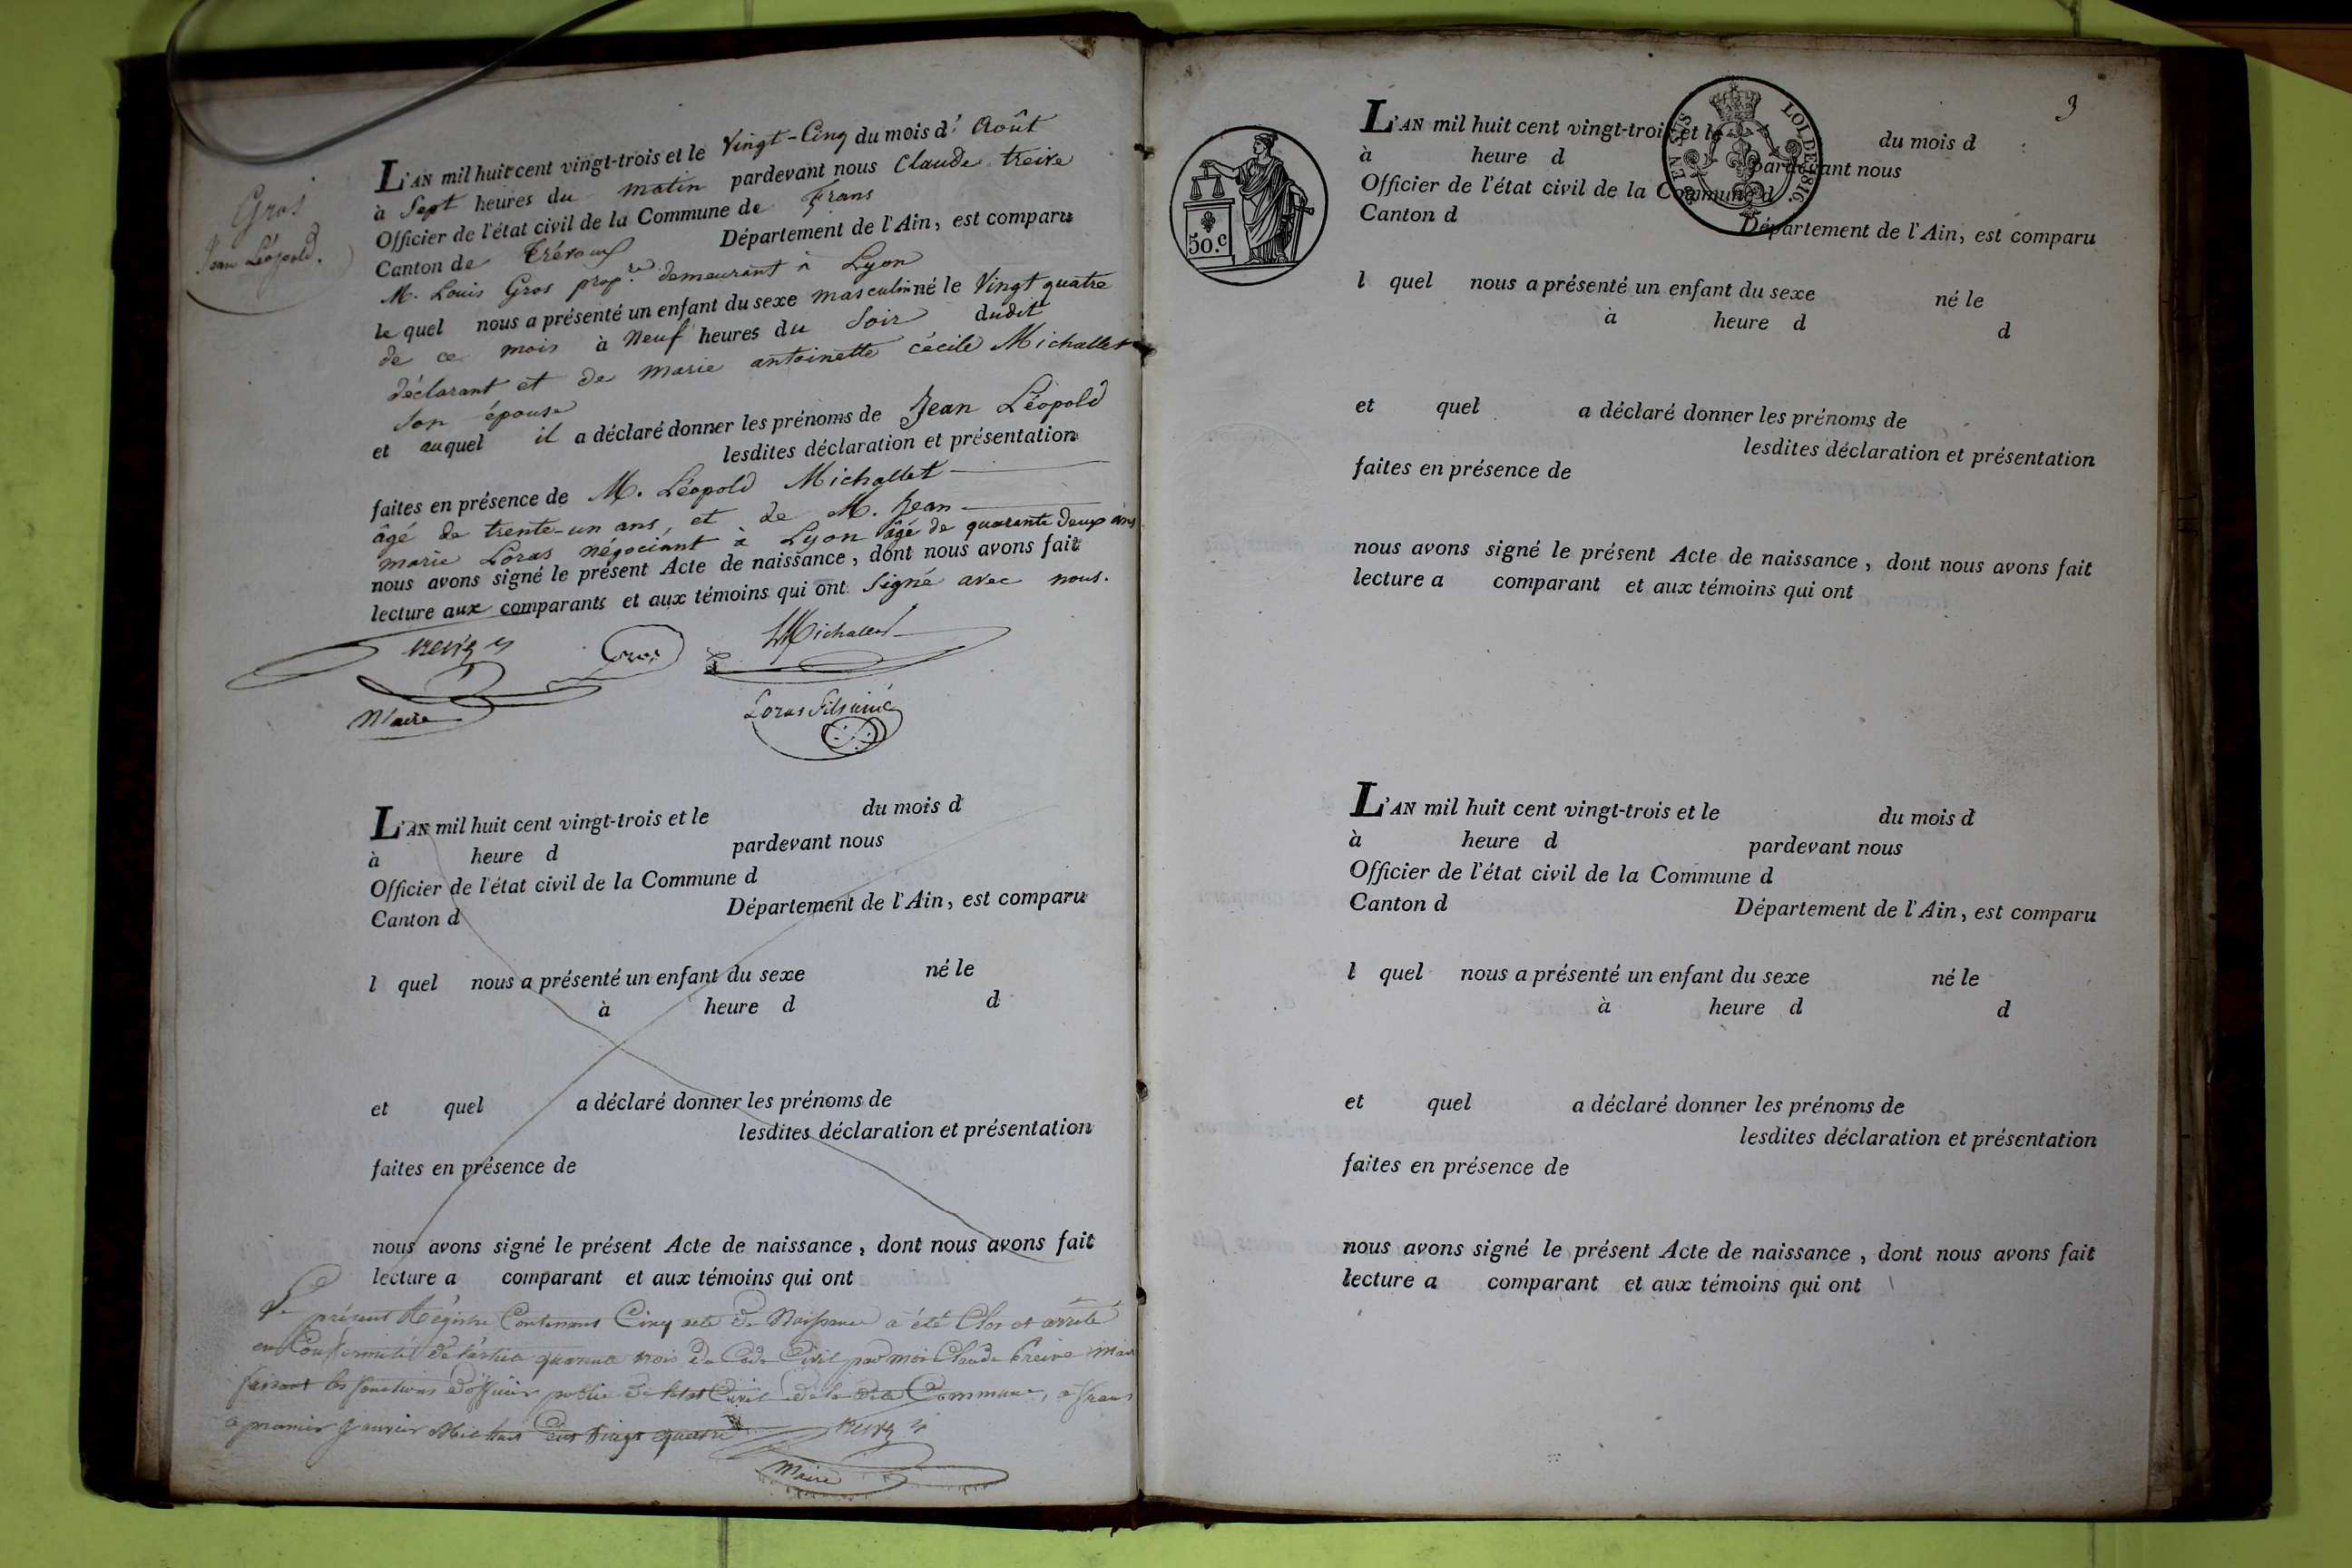 Gros
Jean Léopold.
L'AN mil huit cent vingt-trois et le Vingt-Cinq du mois d' Août
à Sept heures du matin pardevant nous Claude treive
Officier de l'état civil de la Commune de frans
Canton de Trévoux Département de l'Ain, est comparu
M. Louis Gros prop.re demeurant à Lyon
le quel nous a présenté un enfant du sexe masculin né le Vingt quatre
de ce mois à Neuf heures du Soir dudit
déclarant et de marie antoinette cécile Michallet
son épouse
et auquel il a déclaré donner les prénoms de Jean Léopold
lesdites déclaration et présentation
faites en présence de M. Léopold Michallet
âgé de trente-un ans, et de M. Jean
marie Loras négociant à Lyon âgé de quarante deux ans
nous avons signé le présent Acte de naissance, dont nous avons fait
lecture aux comparants et aux témoins qui ont signé avec nous.
Gros
LMichallet
Maire
Loras fils ainé
L'AN mil huit cent vingt-trois et le du mois d
à heure d pardevant nous
Officier de l'état civil de la Commune d
Canton d Département de l'Ain, est comparu
l quel nous a présenté un enfant du sexe né le
à heure d d
et quel a déclaré donner les prénoms de
lesdites déclaration et présentation
faites en présence de
nous avons signé le présent Acte de naissance, dont nous avons fait
lecture a comparant et aux témoins qui ont
Le présent Régistre Contenant Cinq acte de Naissance a été Clos et arrêté
en Conformité de l'article quarante trois du Code Civil par moi Claude treive Maire
faisant les fonctions d'officier public de l'état Civil de la dite Commune, a frans
le premier Janvier Mil huit Cent Vingt quatre
Maire
3
50.c
LOI DE 1816.
L'AN mil huit cent vingt-trois et le du mois d
à heure d pardevant nous
Officier de l'état civil de la Commune d
Canton d Département de l'Ain, est comparu
l quel nous a présenté un enfant du sexe né le
à heure d d
et quel a déclaré donner les prénoms de
lesdites déclaration et présentation
faites en présence de
nous avons signé le présent Acte de naissance, dont nous avons fait
lecture a comparant et aux témoins qui ont
L'AN mil huit cent vingt-trois et le du mois d
à heure d pardevant nous
Officier de l'état civil de la Commune d
Canton d Département de l'Ain, est comparu
l quel nous a présenté un enfant du sexe né le
à heure d d
et quel a déclaré donner les prénoms de
lesdites déclaration et présentation
faites en présence de
nous avons signé le présent Acte de naissance, dont nous avons fait
lecture a comparant et aux témoins qui ont